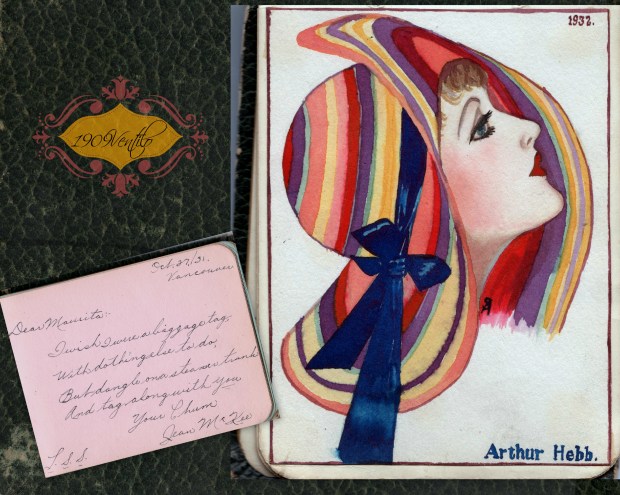 1909Ventilo
1932.
Oct. 27/31.
Vancouver
Dear Maurita:-
I wish I were a biggage tag,
With nothing else to do,
But dangle on a steamer trunk
And tag along with You
Your Chum
Jean McKee
T.S.S.
Arthur Hebb.